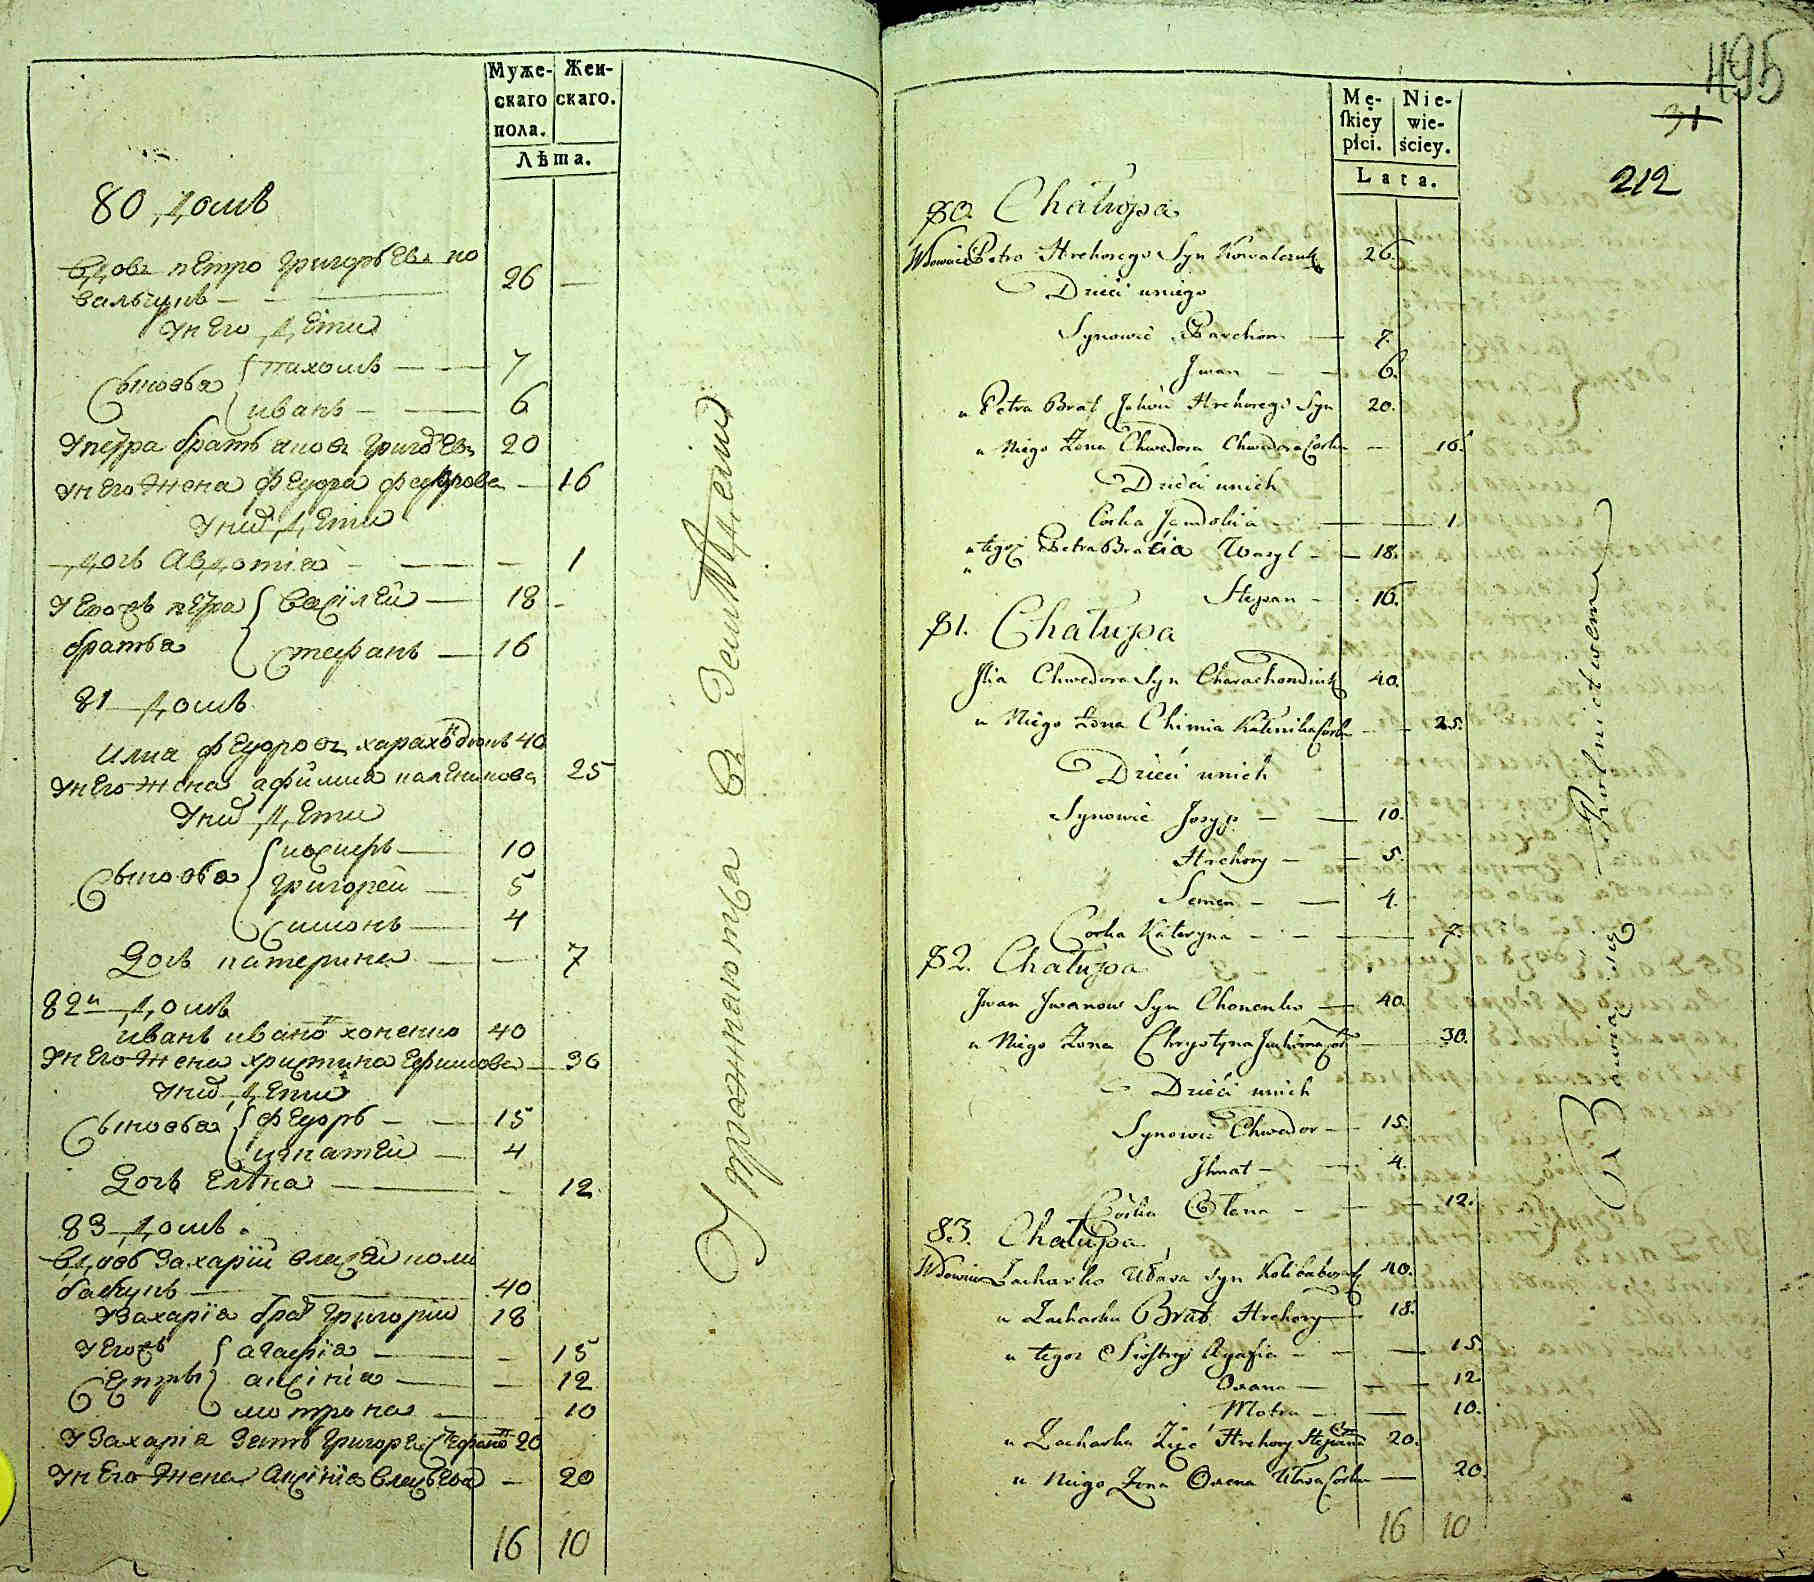 Муже-
скаго
пола.
Жен-
скаго.
Лѣта.
80 домъ
вдовъ петро григорьевъ ко
вальчукъ — 26 —
У него дети
Сыновья пахомъ — 7
иванъ — 6
У петра братъ яковъ григорьевъ 20
У него жена феодора федорова — 16
У них дети
дочь Авдотиа — 1
У тогожъ петра братья василей — 18 —
Стефанъ — 16
81 домъ
илиа феодоровъ харахондюкъ 40
У него жена афимиа каленикова 25
У них дети
Сыновья иосиеръ — 10
григорей — 5
Симонъ — 4
Дочь катерина — 7
82й домъ
иванъ иванов хоненко 40
У него жена христина ефимова — 30
У них дети
Сыновья феодоръ — 15
игнатей — 4
Дочь елѣна — 12
83 домъ
вдовъ Захарій власей коли
бабчукъ — 40
У Захаріа брат григорій 18
У тогожъ сестры агафіа — 15
аксініа — 12
мотрона — 10
У Захаріа зять григорей Стефанов 20
У него жена Аксініа власьева — 20
16 10
Упражняются въ Земледеліи
495
31
212
Mę-
ſkiey
płci.
Nie-
wie-
ściey.
Lata.
80. Chałupa
Wdowiec Petro Hrehorego Syn Kowalczuk 26.
Dzieci uniego
Synowie Parchom — 7.
Jwan — 6.
u Petra Brat Jakow Hrehorego Syn 20.
u Niego Żona Chwedora Chwedora Corka — 16.
Dzieci unich
Corka Jawdokia — 1
u tegoż Petra Bracia Wasyl — 18.
Stepan — 16.
81. Chałupa
Ilia Chwedora Syn Charachondiuk 40.
u Niego Żona Chimia Kalenika Corka — 25.
Dzieci unich
Synowie Josyp — 10.
Hrehory — 5.
Semen — 4.
Corka Kateryna — 7.
82. Chałupa
Jwan Jwanow Syn Chonenko — 40.
u Niego Żona Chrystyna Juchima Cor — 30.
Dzieci unich
Synowie Chwedor — 15.
Jhnat — 4.
Corka Olena — 12.
83. Chałupa
Wdowiec Zacharko Własa Syn Kolibabczuk 40.
u Zacharka Brat Hrehory — 18.
u tegoż Siostry Agafia — 15.
Oxana — 12.
Motra — 10.
u Zacharka Zięć Hrehory Stepana Syn 20.
u Niego Żona Oxena Własa Corka — 20.
16 10
Bawią się Rolnictwem